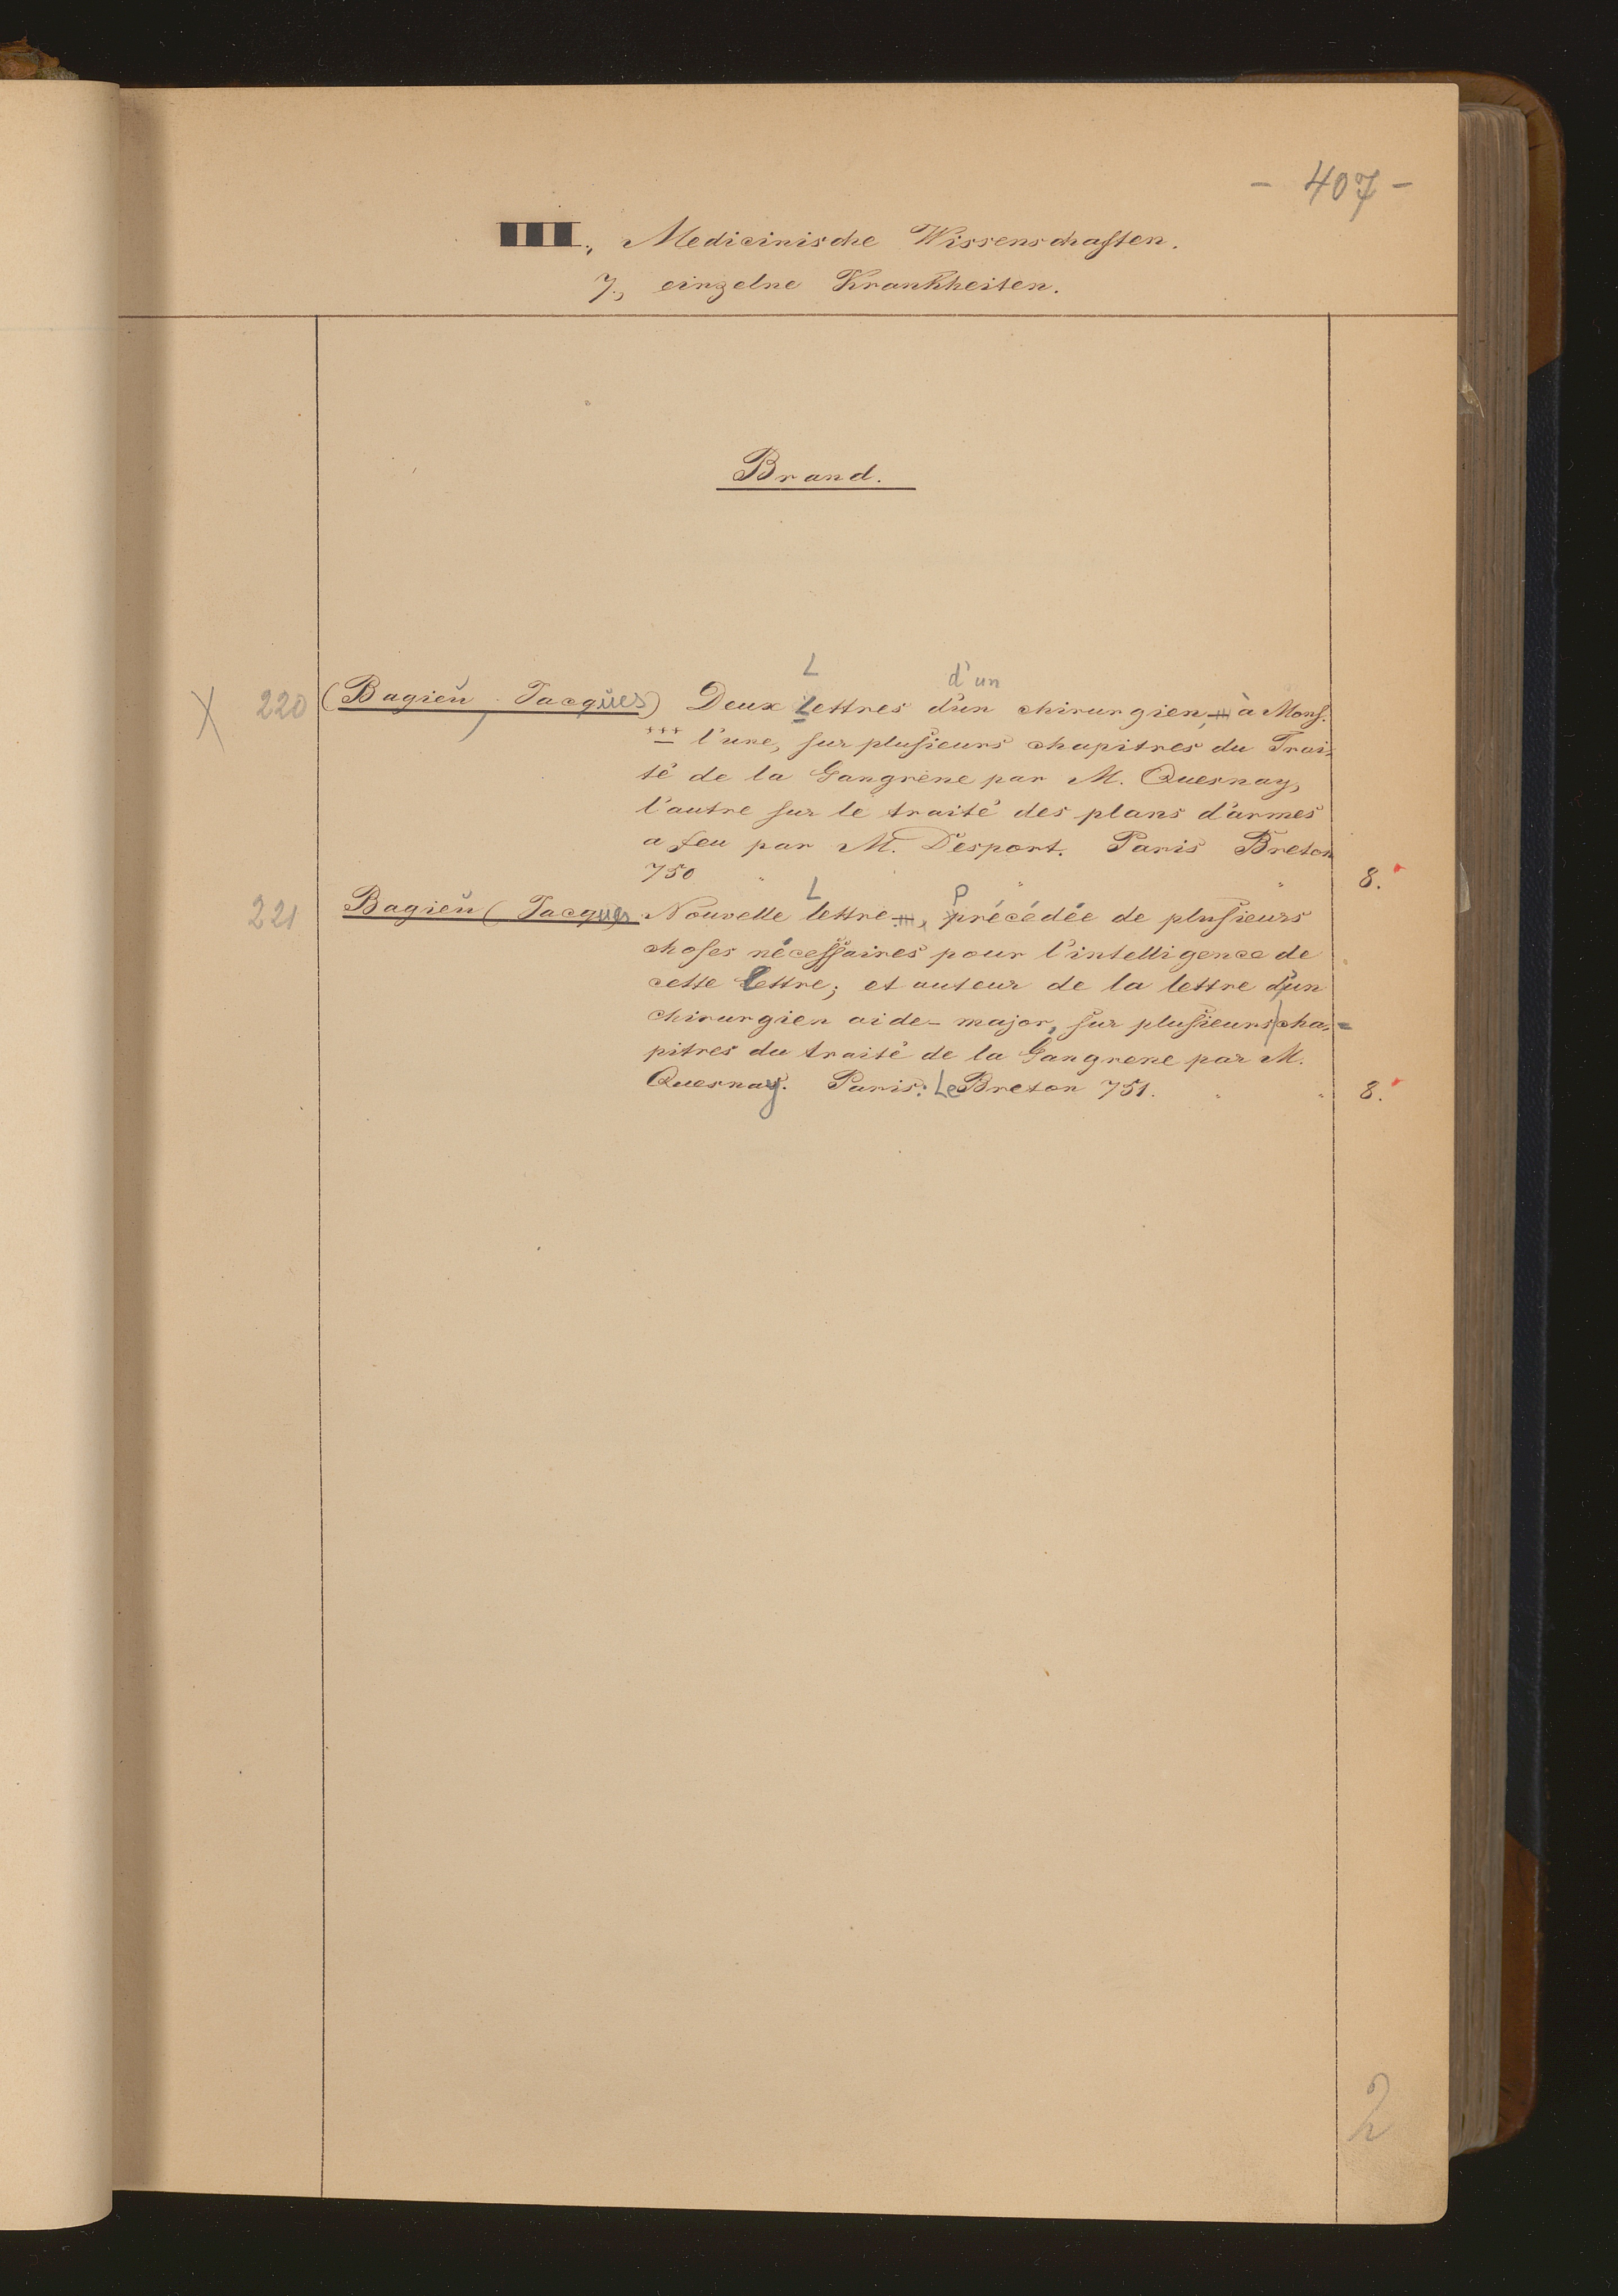 - 407 -
III., Medicinische Wissenschaften.
7., einzelne Krankheiten.
Brand.
L d'un
X 220 (Bagieŭ, Jacqŭes) Deux Lettres d'un chirurgien, à Mons.
*** l'une, sur plusieurs chapitres du Trai-
té de la Gangrène par M. Quesnay,
l'autre sur le traité des plans d'armes
a feu par M. Desport. Paris Breton
750 " " " 8.
L P
221 Bagieŭ (Jacques Nouvelle lettre, précédée de plusieurs
choses nécessaires pour l'intelligence de
cette lettre; et auteur de la lettre d'un
chirurgien aide-major, sur plusieurs cha-
pitres du traité de la Gangrene par M.
Quesnay. Paris: Le Breton 751. " " 8.
2